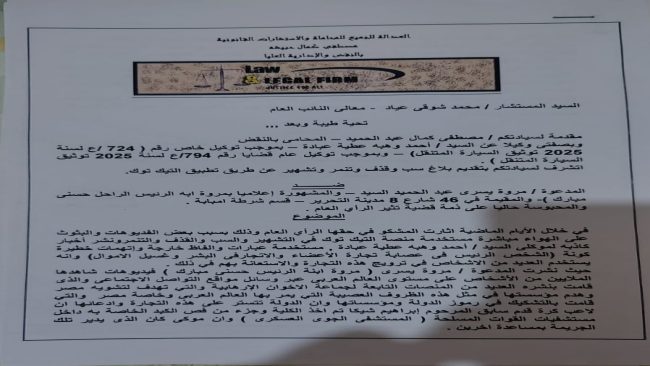 العدالة للجميع للمحاماة والاستشارات القانونية
مصطفى كمال
بالنقض والإدارية العليا
Law
& LEGAL FIRM
JUSTICE FOR ALL
السيد المستشار / محمد شوقى عياد - معالى النائب العام
تحية طيبة وبعد ...
مقدمة لسيادتكم / مصطفى كمال عبد الحميد – المحامى بالنقض
وبصفتى وكيلا عن السيد / أحمد وهبه عطية عبادة – بموجب توكيل خاص رقم ( 724 /ع لسنة
2025 توثيق السيارة المتنقل ) – وبموجب توكيل عام قضايا رقم 794/ع لسنة 2025 توثيق
السيارة المتنقل ) .
اتشرف لسيادتكم بتقديم بلاغ سب وقذف وتنمر وتشهير عن طريق تطبيق التيك توك.
ضد
المدعوة / مروة يسرى عبد الحميد السيد – والمشهورة إعلاميا بمروة ابنه الرئيس الراحل حسنى
مبارك )- والمقيمة في 46 شارع 8 مدينة التحرير – قسم شرطة امبابة .
والمحبوسة حاليا على ذمة قضية تثير الرأي العام .
الموضوع
في خلال الأيام الماضية اثارت المشكو في حقها الرأي العام وذلك بسبب بعض الفديوهات والبثوث
على الهواء مباشرة مستخدمة منصة التيك توك في التشهير والسب والقذف والتنمر ونشر أخبار
كاذبه لموكلى السيد / أحمد وهبه عطية عبادة . مستخدمة عبارات والفاظ خارجة واتهمات خطيرة
كونة (الشخص الرئيس فى عصابة تجارة الأعضاء والاتجار في البشر وغسيل الاموال) وانه
يستخدم العديد من الأشخاص في ترويج هذه التجارة والاستعانة بهم في ذلك .
حيث نشرت المدعوة / مروة يسرى ( مروة ابنة الرئيس حسنى مبارك ) فيديوهات شاهدها
الملايين من الأشخاص على مستوى العالم العربى عبر وسائل مواقع التواصل الاجتماعي والذى
قامت بنشره العديد من المنصات التابعة لجماعة الاخوان الإرهابية والتي تهدف لتشويه مصر
وهدم مؤسستها في مثل هذه الظروف العصيبة التي يمر بها العالم العربى وخاصة مصر والتي
قامت بالتشكيك في رموز الدولة ومؤسساتها وان الدولة تتستر على هذه التجارة وادعائها ان
لاعب كرة قدم سابق المرحوم إبراهيم شيكا تم اخذ الكلية وجزء من فص الكبد الخاصة به داخل
مستشفيات القوات المسلحة ( المستشفى الجوى العسكرى ) وان موكلى كان الذى يدير تلك
الجريمة بمساعدة اخرين .